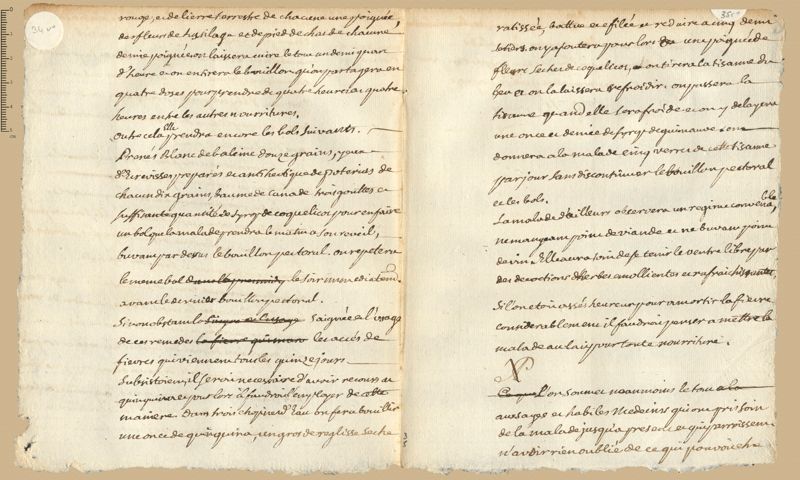 34 vo
rouge, et de lierre terrestre de chacune une poignée,
des fleurs de tusilage et de pied de chat de chacune
demie poignée on laissera cuire le tout un demi quart
d'heure et on en tirera le bouillon qu'on partagera en
quatre dozes pour prendre de quatre heures en quatre
heures entre les autres nourritures.
outre cela elle prendra encore les bols suivants.
Prenés Blanc de baleine douze grains, yeux
d'Ecrevisses preparés et antihectique de poteries de
chacun dix grains, baume de Canada trois gouttes et
suffisante quantité de syrop de coquelicot pour en faire
un bol que la malade prendra le matin a son reveil,
buvant par dessus le bouillon pectoral. on repetera
le meme bol le soir immediatemt.
avant le dernier bouillon pectoral.
Si nonobstant la saignée et l'usage
de ces remedes les accés de
fievres qui viennent tous les quinze jours
subsistoient, il seroit necessaire d'avoir recours au
quinquina et pour lors il faudroit l'employer de cette
maniere. Dans trois chopines d'eau on fera bouillir
une once de quinquina, un gros de reglisse seche
35 ro
ratissée, battue et efilée et reduire a cinq demi
setiers. on y ajoutera pour lors une poignée de
fleurs seches de coquelicot, on tirera la tisanne du
feu et on la laissera refroidir. on passera la
tisanne quand elle sera froide et on y delayera
une once et demie de syrop de guimauve et on
donnera a la malade cinq verres de cette tisanne
par jour sans discontinuer le bouillon pectoral
et les bols.
La malade d'ailleurs observera un regime convenable,
ne mangeant point de viande et ne buvant point
de vin. Elle aura soin de se tenir le ventre libre par
des decoctions d'herbes emollientes et rafraichissantes.
Si l'on etoit assés heureux pour amortir la fievre
considerablement il faudroit penser a mettre la
malade au lait pour toute nourriture.
l'on soumet neanmoins le tout
aux sages et habiles Medecins qui ont pris soin
de la malade jusqu'a present et qui paroissent
n'avoir rien oublié de ce qui pouvoit